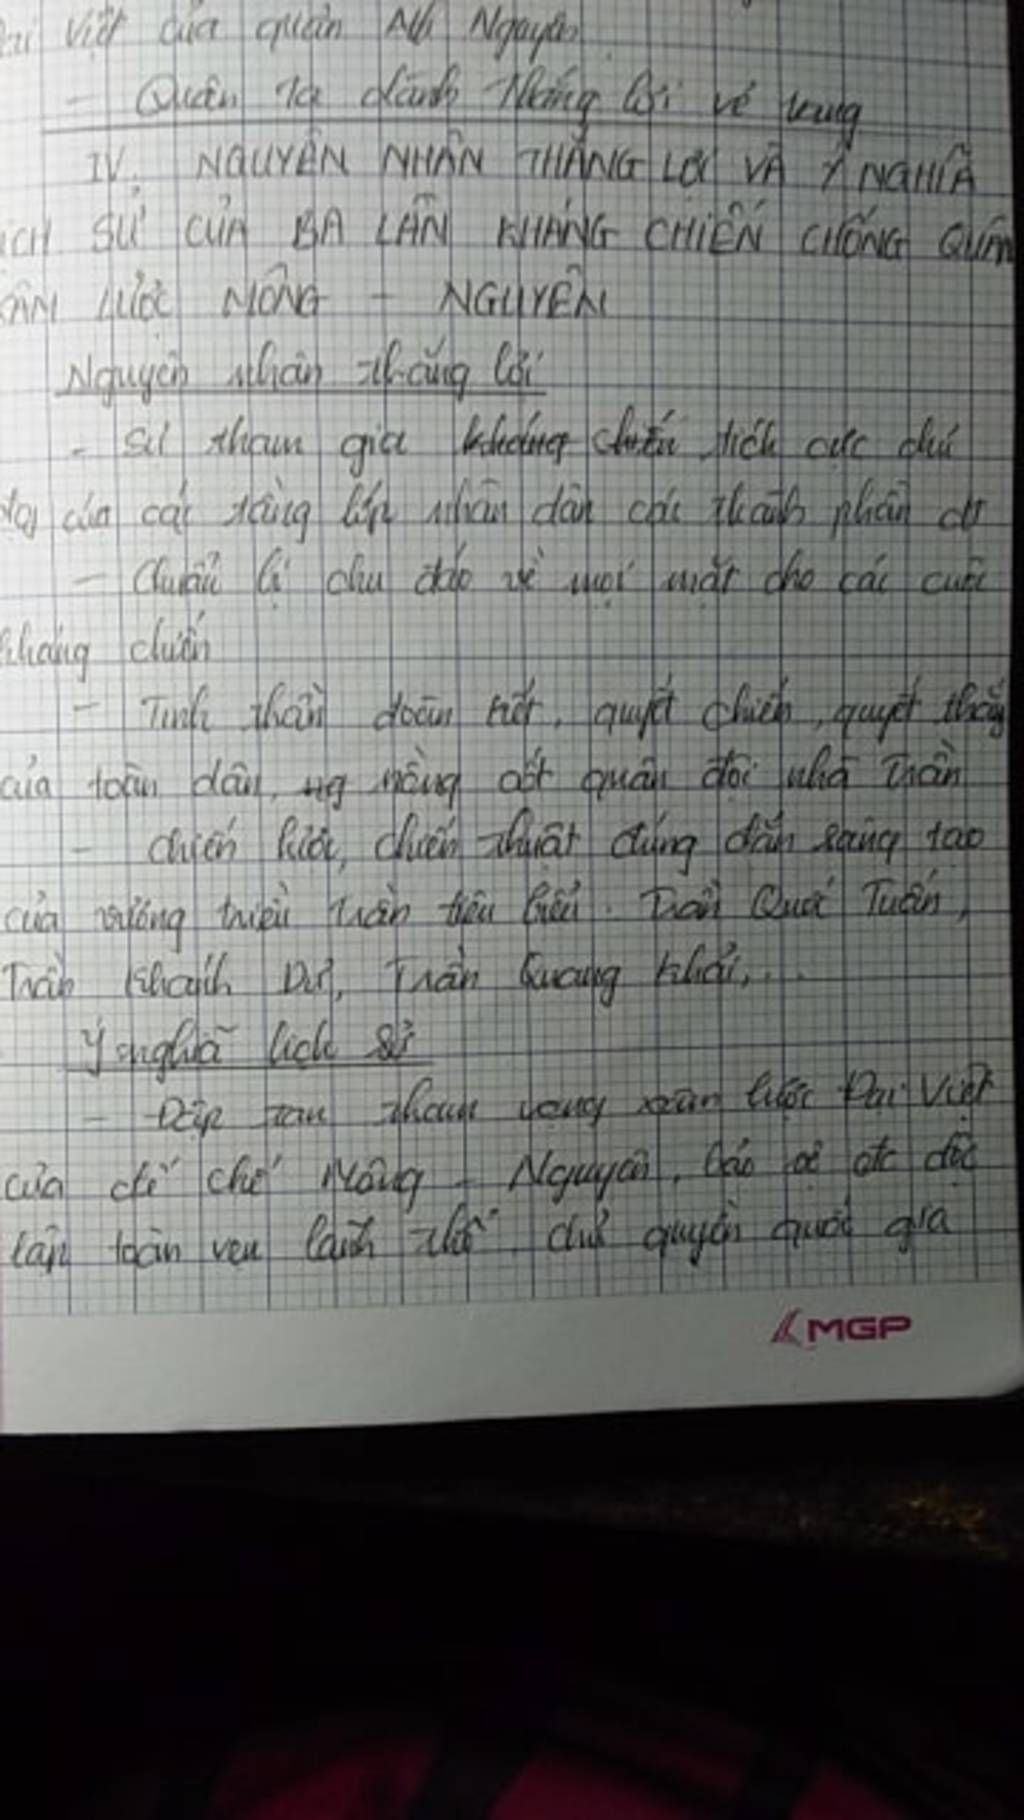 Việt của quân Nguyên
- Quân ta dành thắng lợi vẻ vang
IV. NGUYÊN NHÂN THẮNG LỢI VÀ Ý NGHĨA
SỬ CỦA BA LẦN KHÁNG CHIẾN CHỐNG QUÂN
LƯỢC MÔNG - NGUYÊN
Nguyên nhân thắng lợi
- Sự tham gia kháng chiến tích cực chủ
của các tầng lớp nhân dân các thành phần
- Chuẩn bị chu đáo về mọi mặt cho các cuộc
kháng chiến
- Tinh thần đoàn kết, quyết chiến, quyết thắng
của toàn dân, mà nòng cốt quân đội nhà Trần
- Chiến lược, chiến thuật đúng đắn sáng tạo
của vương triều Trần tiêu biểu: Trần Quốc Tuấn,
Trần Khánh Dư, Trần Quang Khải,...
Ý nghĩa lịch sử
- Đập tan tham vọng xâm lược Đại Việt
của đế chế Mông - Nguyên, bảo vệ độc
lập toàn vẹn lãnh thổ, chủ quyền quốc gia
MGP